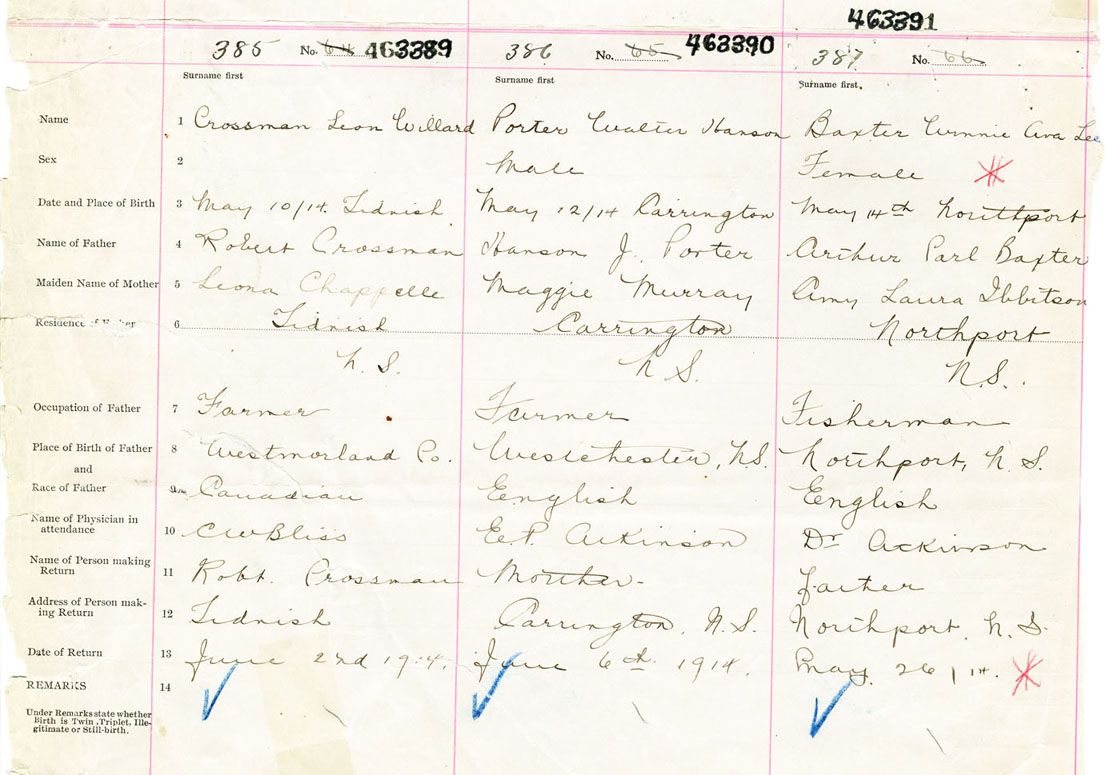 463391
385 No. 64 463389 386 No. 65 463390 387 No. 66
Surname first Surname first Surname first.
Name 1 Crossman Leon Willard Porter Walter Hanson Baxter Winnie Ava Lee
Sex 2 Male Female
Date and Place of Birth 3 May 10/14. Tidnish May 12/14 Carrington May 14th Northport
Name of Father 4 Robert Crossman Hanson J. Porter Arthur Parl Baxter
Maiden Name of Mother 5 Leona Chappelle Maggie Murray Amy Laura Ibbitson
Residence of Father 6 Tidnish Carrington Northport
N.S. N S. N.S.
Occupation of Father 7 Farmer Farmer Fisherman
Place of Birth of Father 8 Westmorland Co. Westchester, NS. Northport, N.S.
and
Race of Father 9 Canadian English English
Name of Physician in
attendance 10 CW Bliss E.P. Atkinson Dr Ackinson
Name of Person making
Return 11 Robt. Crossman Mother - father
Address of Person mak-
ing Return 12 Tidnish Carrington, N.S. Northport, N.S.
Date of Return 13 June 2nd 1914. June 6th 1914. May 26/14.
REMARKS 14
Under Remarks state whether
Birth is Twin, Triplet, Ille-
gitimate or Still-birth.